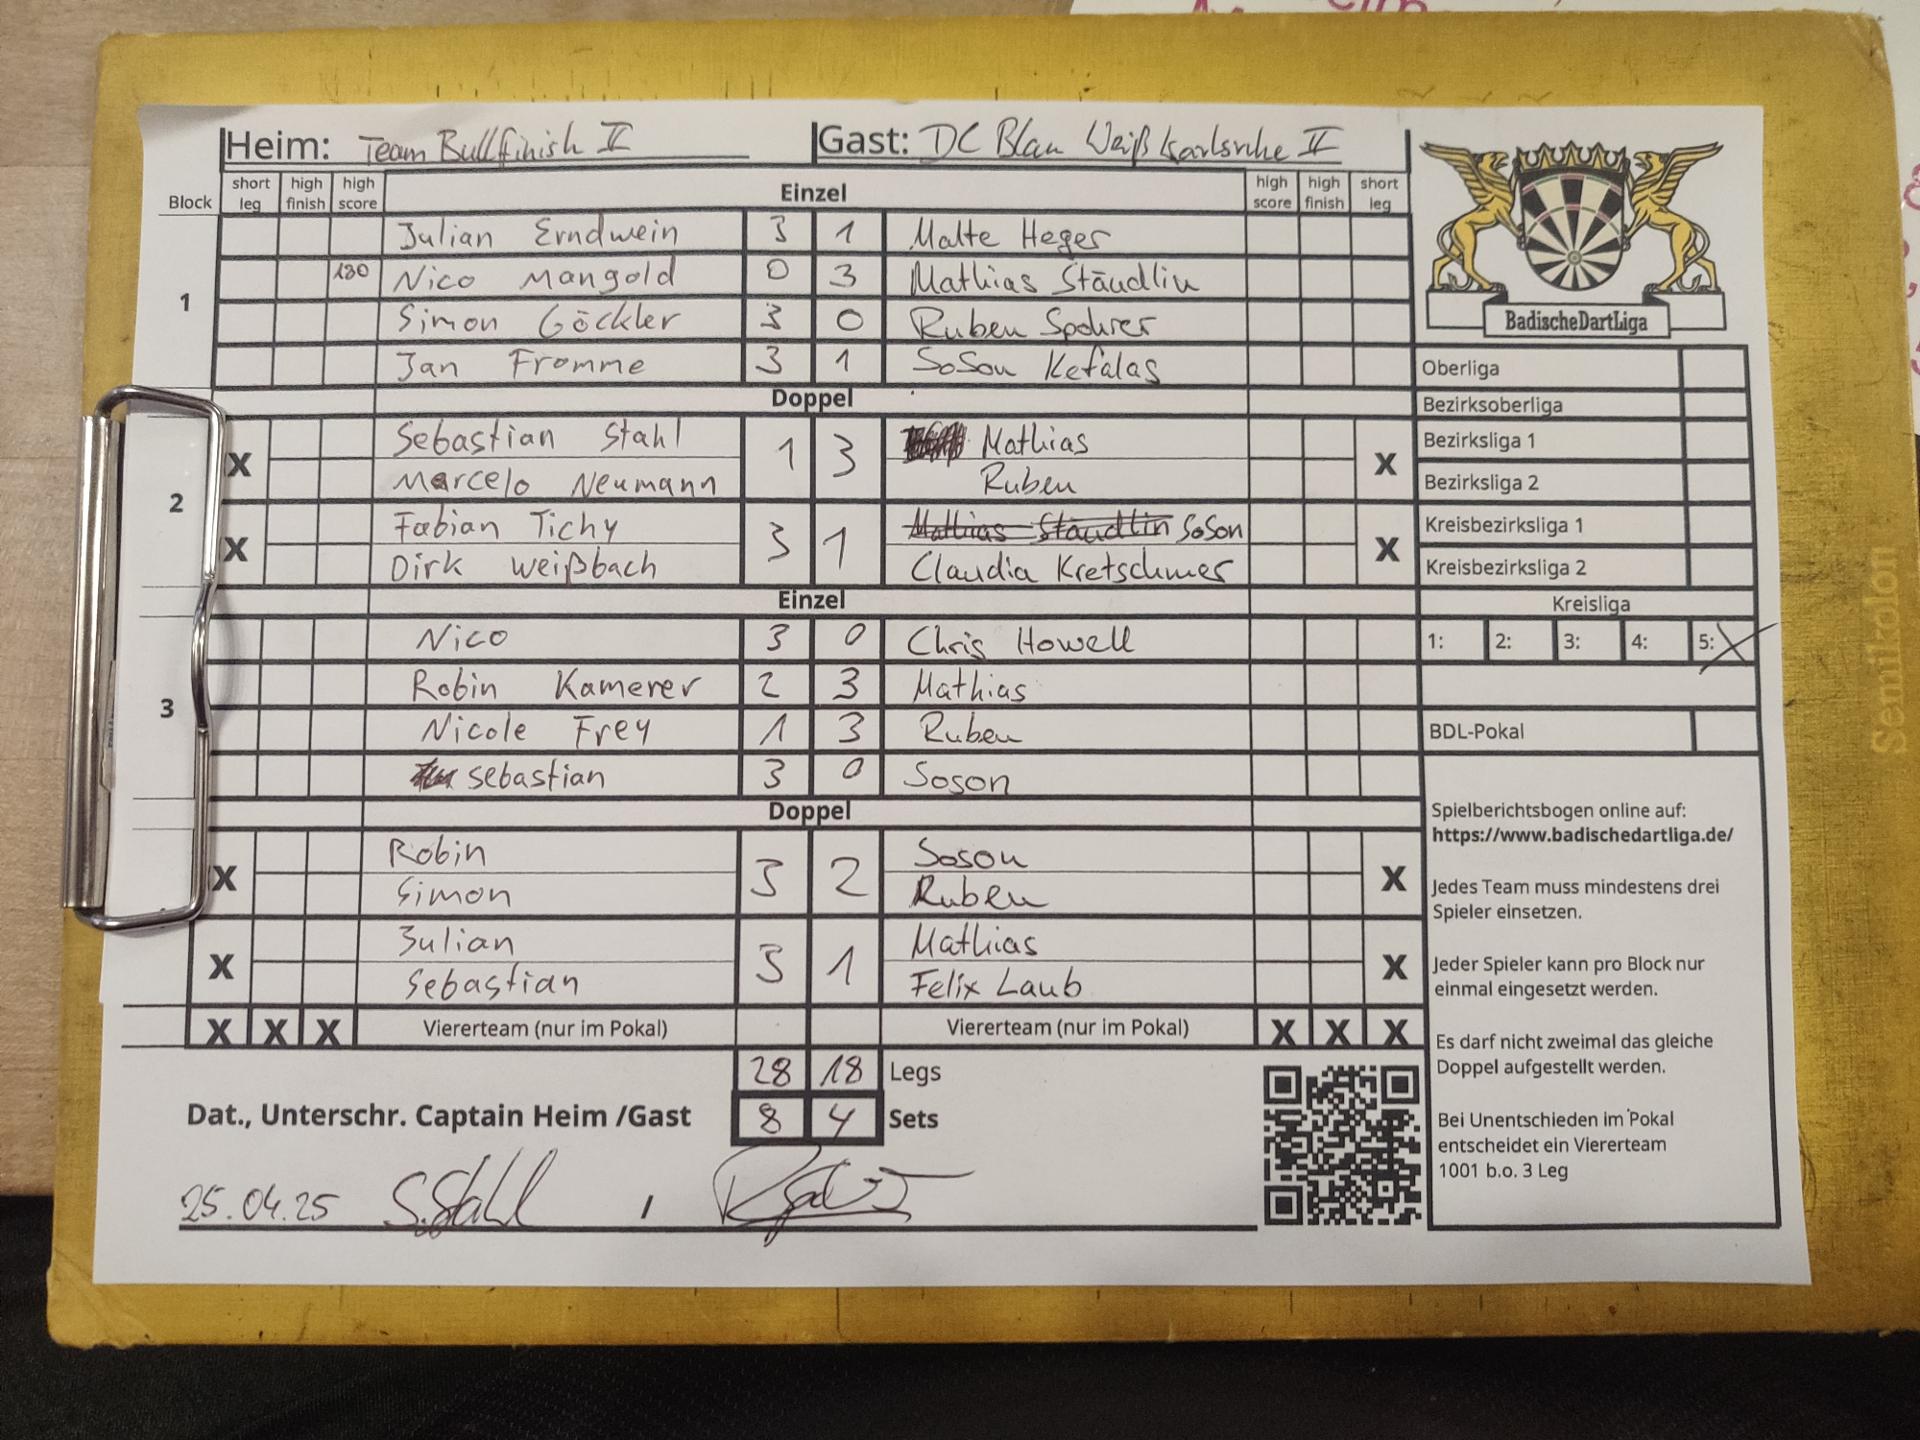 Heim: Team Bullfinish II Gast: DC Blau Weiß Karlsruhe II
Block short leg high finish high score Einzel high score high finish short leg
1
Julian Erndwein 3 1 Malte Heger
180 Nico Mangold 0 3 Mathias Stäudlin
Simon Göckler 3 0 Ruben Spohrer
Jan Fromme 3 1 SoSon Kefalas
Doppel
2
X Sebastian Stahl 1 3 Mathias X
Marcelo Neumann Ruben
X Fabian Tichy 3 1 Mathias Stäudlin SoSon X
Dirk Weißbach Claudia Kretschmer
Einzel
3
Nico 3 0 Chris Howell
Robin Kamerer 2 3 Mathias
Nicole Frey 1 3 Ruben
Sebastian 3 0 Soson
Doppel
X Robin 3 2 Soson X
Simon Ruben
X Julian 3 1 Mathias X
Sebastian Felix Laub
X X X Viererteam (nur im Pokal) Viererteam (nur im Pokal) X X X
28 18 Legs
Dat., Unterschr. Captain Heim /Gast 8 4 Sets
25.04.25 S.Stahl /
BadischeDartLiga
Oberliga
Bezirksoberliga
Bezirksliga 1
Bezirksliga 2
Kreisbezirksliga 1
Kreisbezirksliga 2
Kreisliga
1: 2: 3: 4: 5: X
BDL-Pokal
Spielberichtsbogen online auf:
https://www.badischedartliga.de/
Jedes Team muss mindestens drei
Spieler einsetzen.
Jeder Spieler kann pro Block nur
einmal eingesetzt werden.
Es darf nicht zweimal das gleiche
Doppel aufgestellt werden.
Bei Unentschieden im Pokal
entscheidet ein Viererteam
1001 b.o. 3 Leg
Semikolon